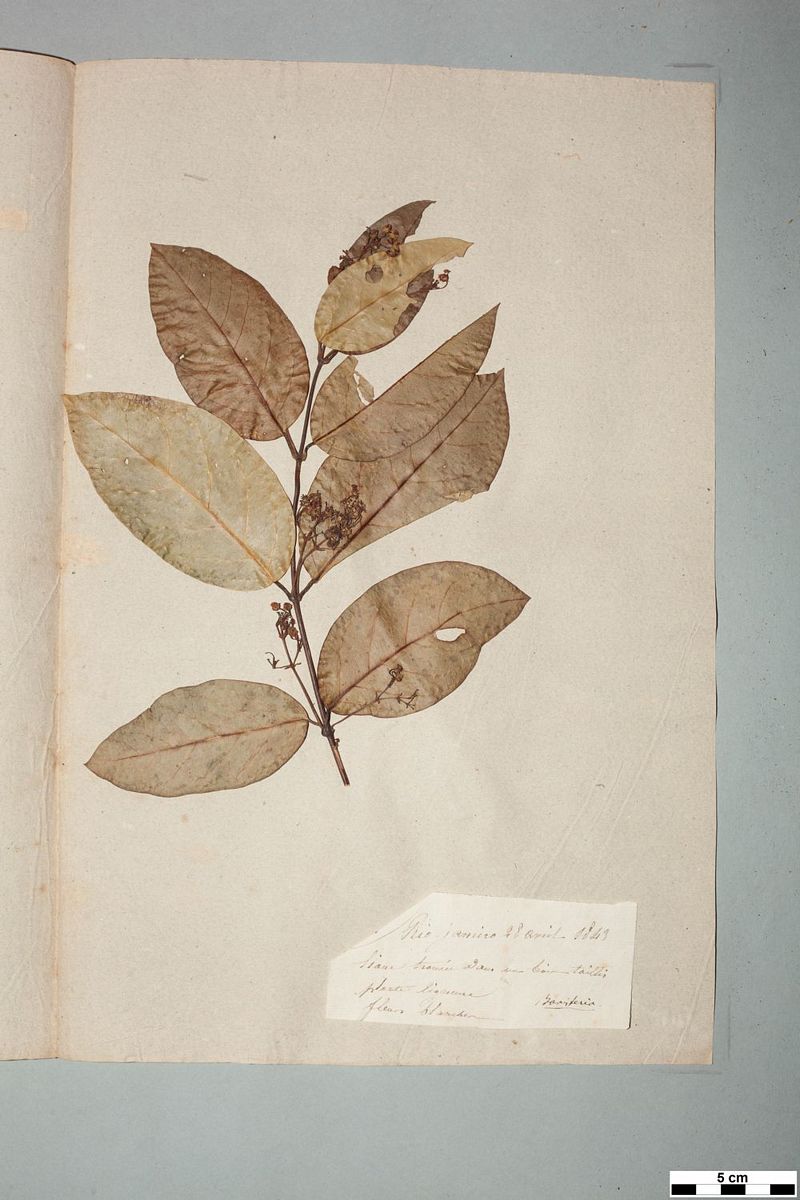 Rio Janeiro 28 avril 1843
liane trouvée dans un bois taillis
plante ligneuse
fleurs blanches
Banisteria
5 cm